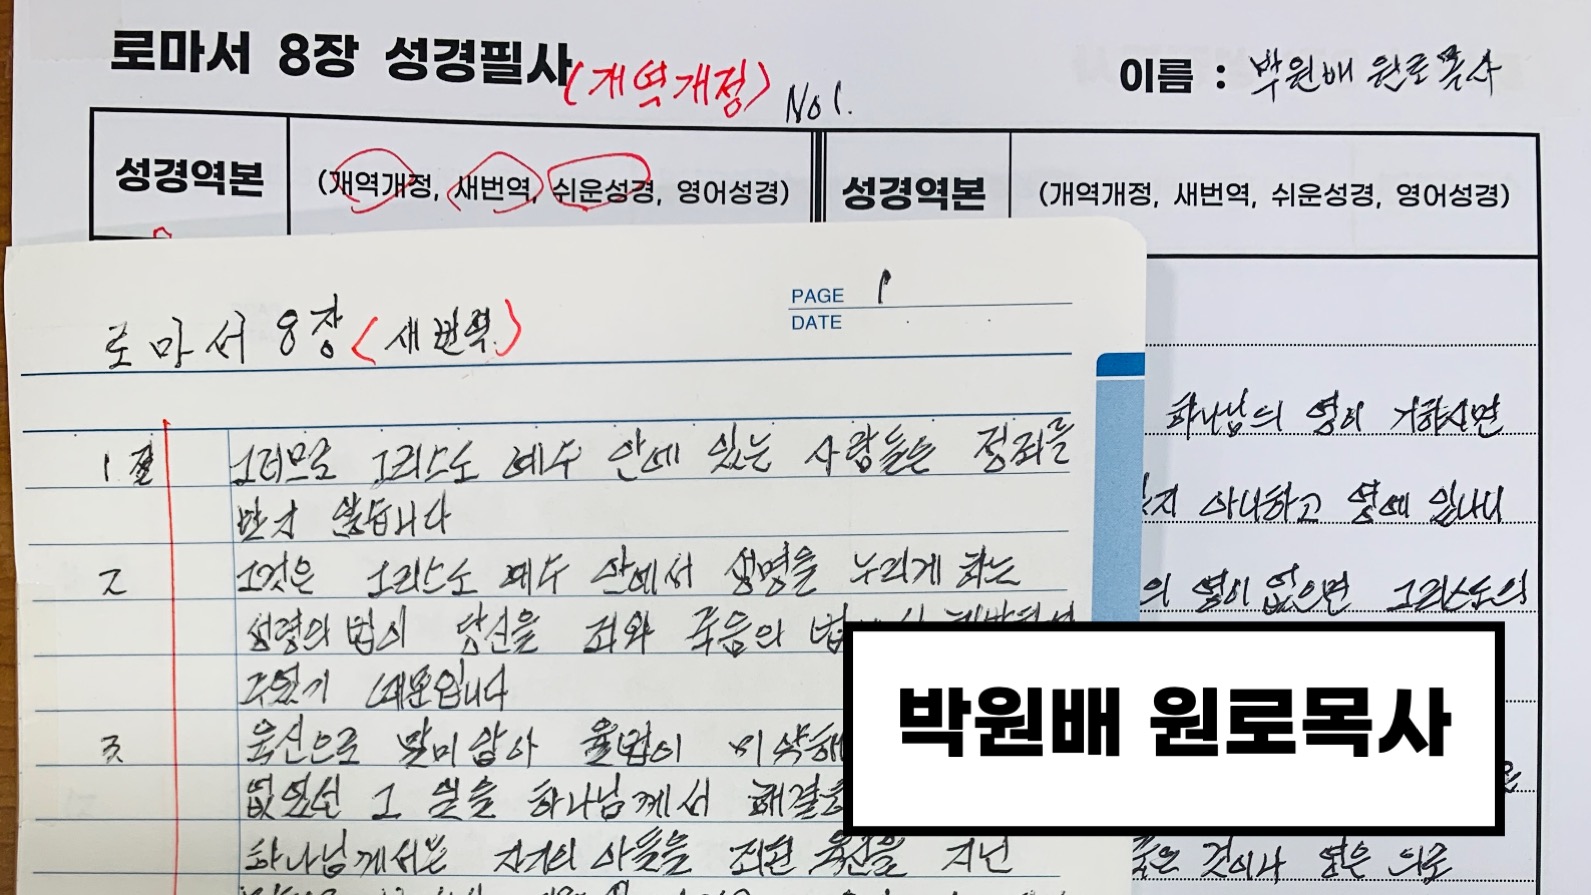 로마서 8장 성경필사(개역개정) No 1.
이름 : 박원배 원로목사
성경역본 (개역개정, 새번역, 쉬운성경, 영어성경)
성경역본 (개역개정, 새번역, 쉬운성경, 영어성경)
PAGE 1
DATE
로마서 8장 (새번역)
1절 그러므로 그리스도 예수 안에 있는 사람들은 정죄를
받지 않습니다
2 그것은 그리스도 예수 안에서 생명을 누리게 하는
성령의 법이 당신을 죄와 죽음의 법
주었기 때문입니다
3 육신으로 말미암아 율법이 미약해
없었던 그 일을 하나님께서 해결
하나님께서는 자기의 아들을 죄된 육신을 지닌
하나님의 영이 거하시면
지 아니하고 영에 있나니
의 영이 없으면 그리스도의
죽은 것이나 영은 의로
박원배 원로목사